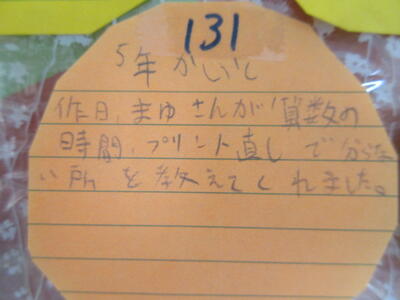 131
5年 かいと
作日、まゆさんが算数の
時間、プリント直しで分らな
い所を教えてくれました。